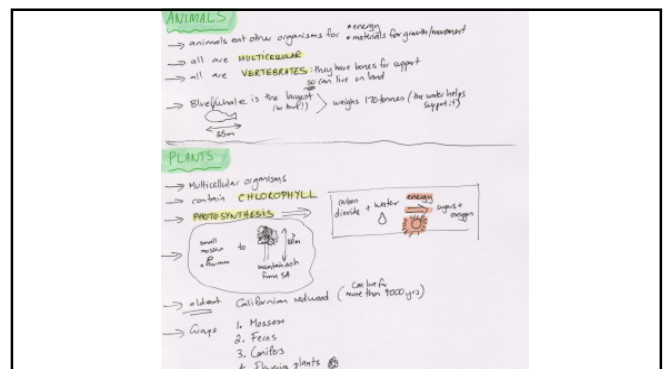 ANIMALS
→ animals eat other organisms for • energy
• materials for growth/movement
→ all are MULTICELLULAR
→ all are VERTEBRATES: they have bones for support
so can live on land
→ Blue Whale is the largest
weighs 170 tonnes (the water helps
support it)
35m
PLANTS
→ Multicellular organisms
→ contain CHLOROPHYLL
→ PHOTOSYNTHESIS
carbon
dioxide + water
energy
sugars +
oxygen
small
to
mountain ash
from SA
→ oldest Californian redwood (can live for
more than 4000 yrs)
→ Groups 1. Mosses
2. Ferns
3. Conifers
4. Flowering plants